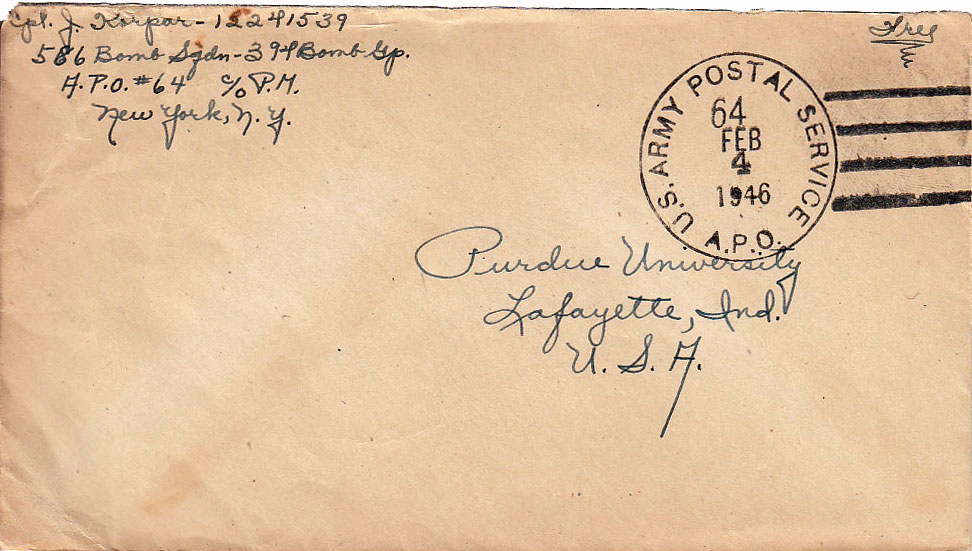 Cpl. J. Korpar - 12241539
586 Bomb Sqdn - 394 Bomb Gp.
A.P.O. #64 c/o P.M.
New York, N.Y.
Free
U.S. ARMY POSTAL SERVICE
64
FEB
4
1946
A.P.O.
Purdue University
Lafayette, Ind.
U. S. A.